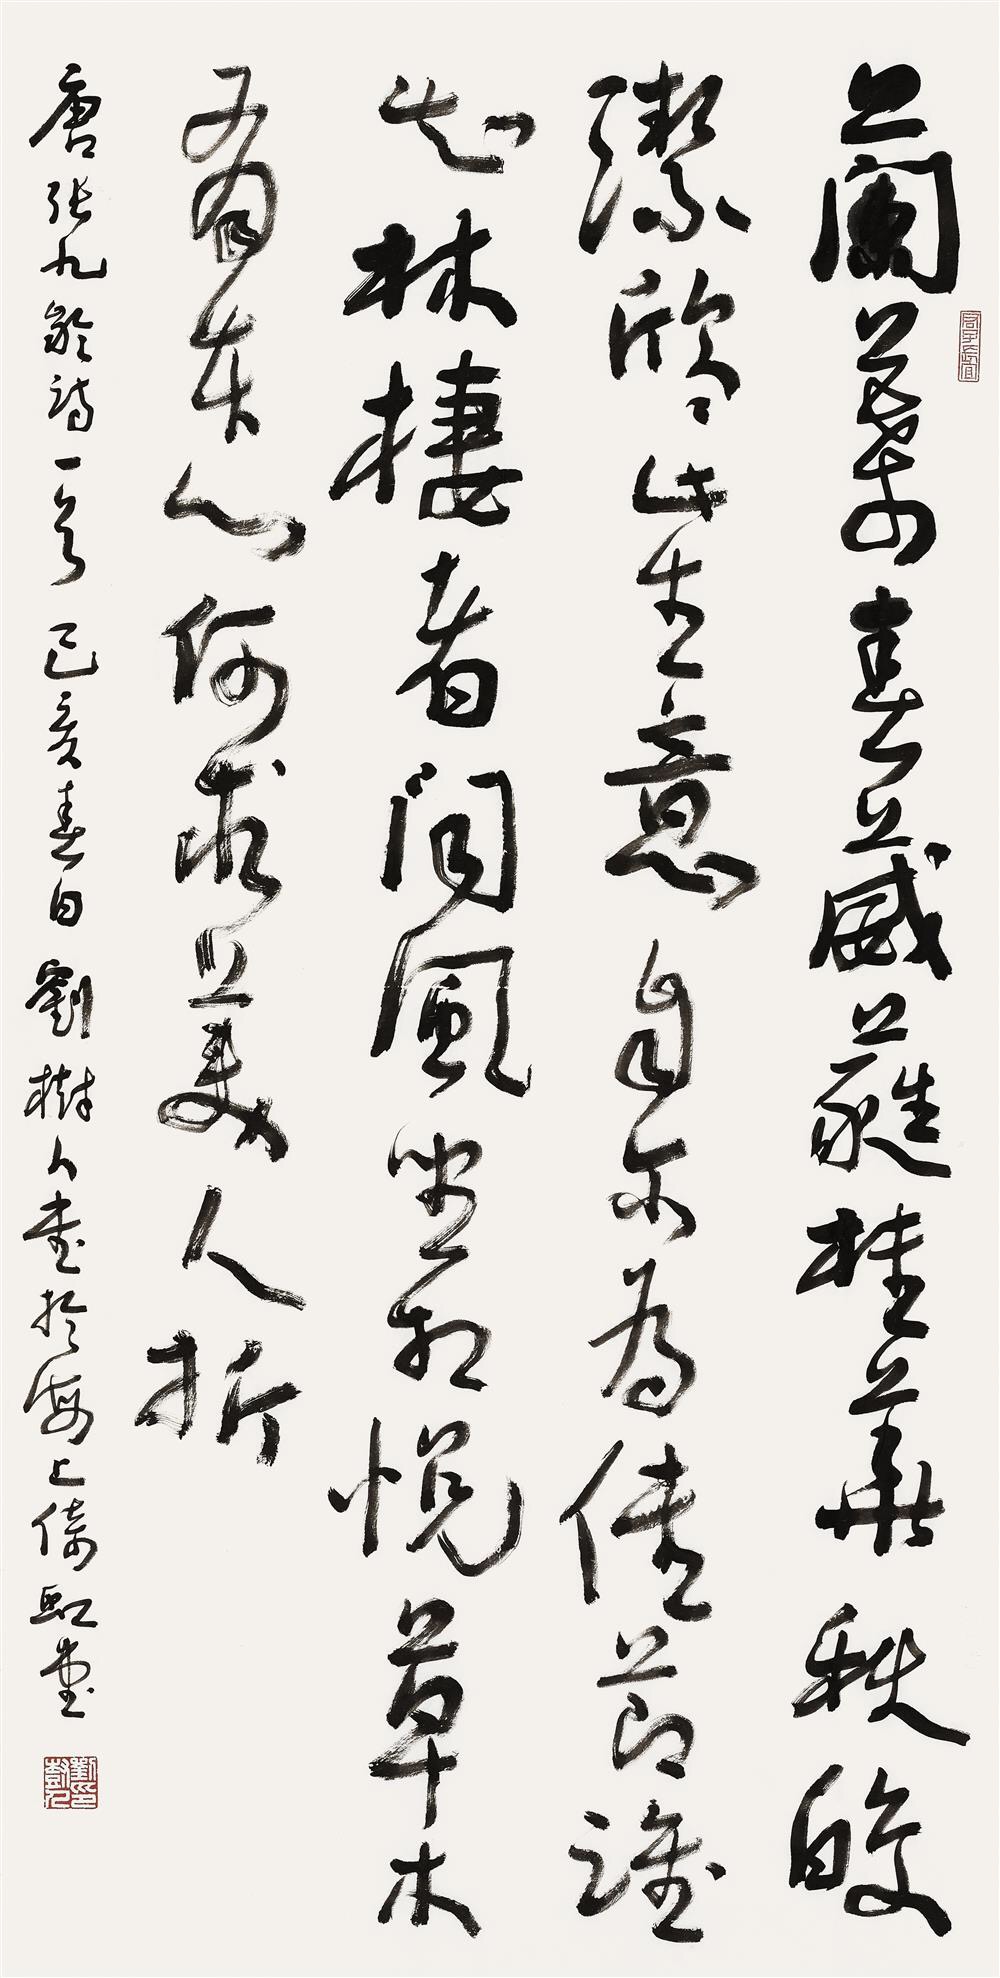 蘭葉春葳蕤桂華秋皎
潔欣〻此生意自尔為佳節誰
知林棲者聞風坐相悦草木
有本心何求美人折
唐張九齡詩一首 己亥春日 劉樹人書於海上倚虹堂